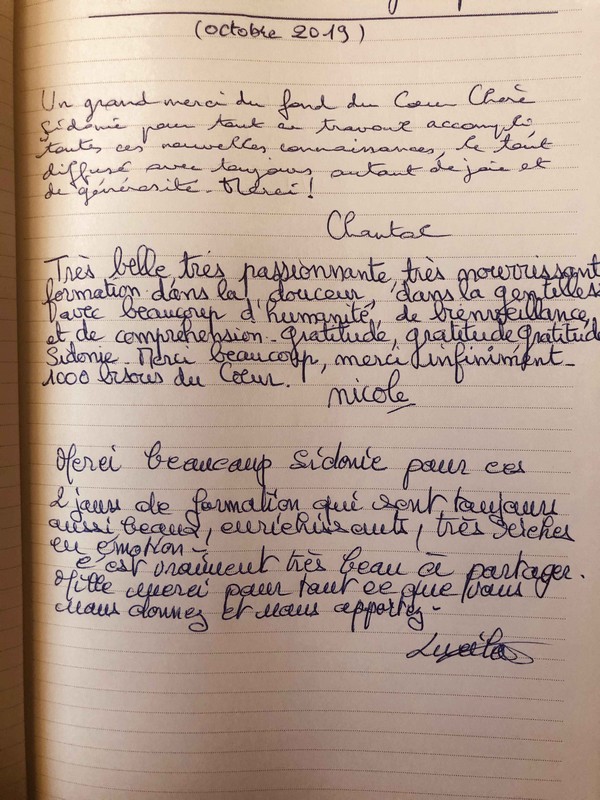 (octobre 2019)
Un grand merci du fond du Coeur Chère
Sidonie pour tout ce travail accompli,
toutes ces nouvelles connaissances, le tout
diffusé avec toujours autant de joie et
de générosité. Merci!
Chantal
Très belle, très passionnante, très nourrissant
formation dans la douceur, dans la gentilles
avec beaucoup d'humanité, de bienveillance,
et de compréhension. gratitude, gratitude gratitude
Sidonie. Merci beaucoup, merci infiniment.
1000 bisous du Coeur.
nicole
Merci beaucoup Sidonie pour ces
2 jours de formation qui sont toujours
aussi beaux, enrichissants, très riches
en émotion.
C'est vraiment très beau à partager.
Mille merci pour tout ce que vous
nous donnez et nous apportez.